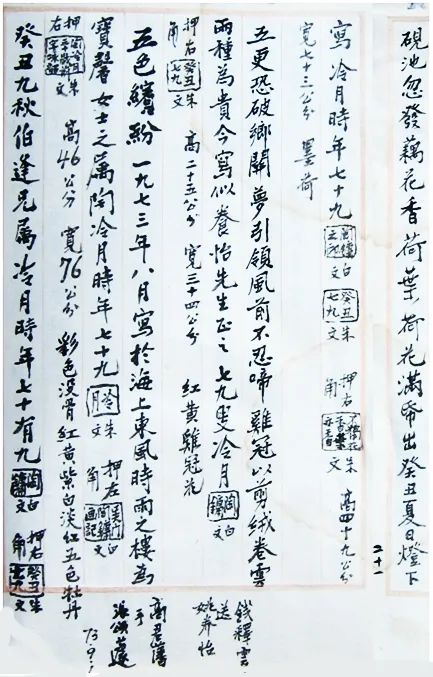 硯池忽發藕花香荷葉荷花滿帋出癸丑夏日燈下
寫冷月時年七十九 白文 癸丑七九 朱文 押右角 朱文 高四十九公分
寬七十三公分 墨荷
二十一
五更恐破鄉關夢引領風前不忍啼雞冠以剪絨卷雲
兩種為貴今寫似養怡先生正之七九叟冷月 陶鏞 白文
押右角 癸丑七九 朱文 高二十五公分 寬三十四公分 紅黃雞冠花
五色繽紛 一九七三年八月寫於海上東風時雨之樓為
寶馨女士之属陶冷月時年七十九 冷月 朱文 押左角 吳門陶鏞畫記 白文
押右 朱文 高46公分 寬76公分 彩色没骨紅黃紫白淡紅五色牡丹
癸丑九秋伯逢兄属冷月時年七十有九 陶鏞 白文 押右角 癸丑七九 朱文
錢釋雲
送
姚養怡
高君藩
73.9.